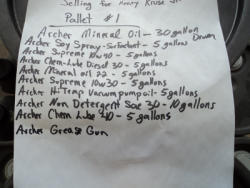 Selling for Henry Kruse Jr.
Pallet #1
Archer Mineral Oil - 30 gallon Drum
Archer Soy Spray - Surfactant - 5 gallons
Archer Supreme 10w40 - 5 gallons
Archer Chem-Lube Diesel 30 - 5 gallons
Archer Mineral oil 22 - 5 gallons
Archer Supreme 10w30 - 5 gallons
Archer Hi-Temp Vacuum pump oil - 5 gallons
Archer Non Detergent Sae 30 - 10 gallons
Archer Chem Lube 40 - 5 gallons
Archer Grease Gun